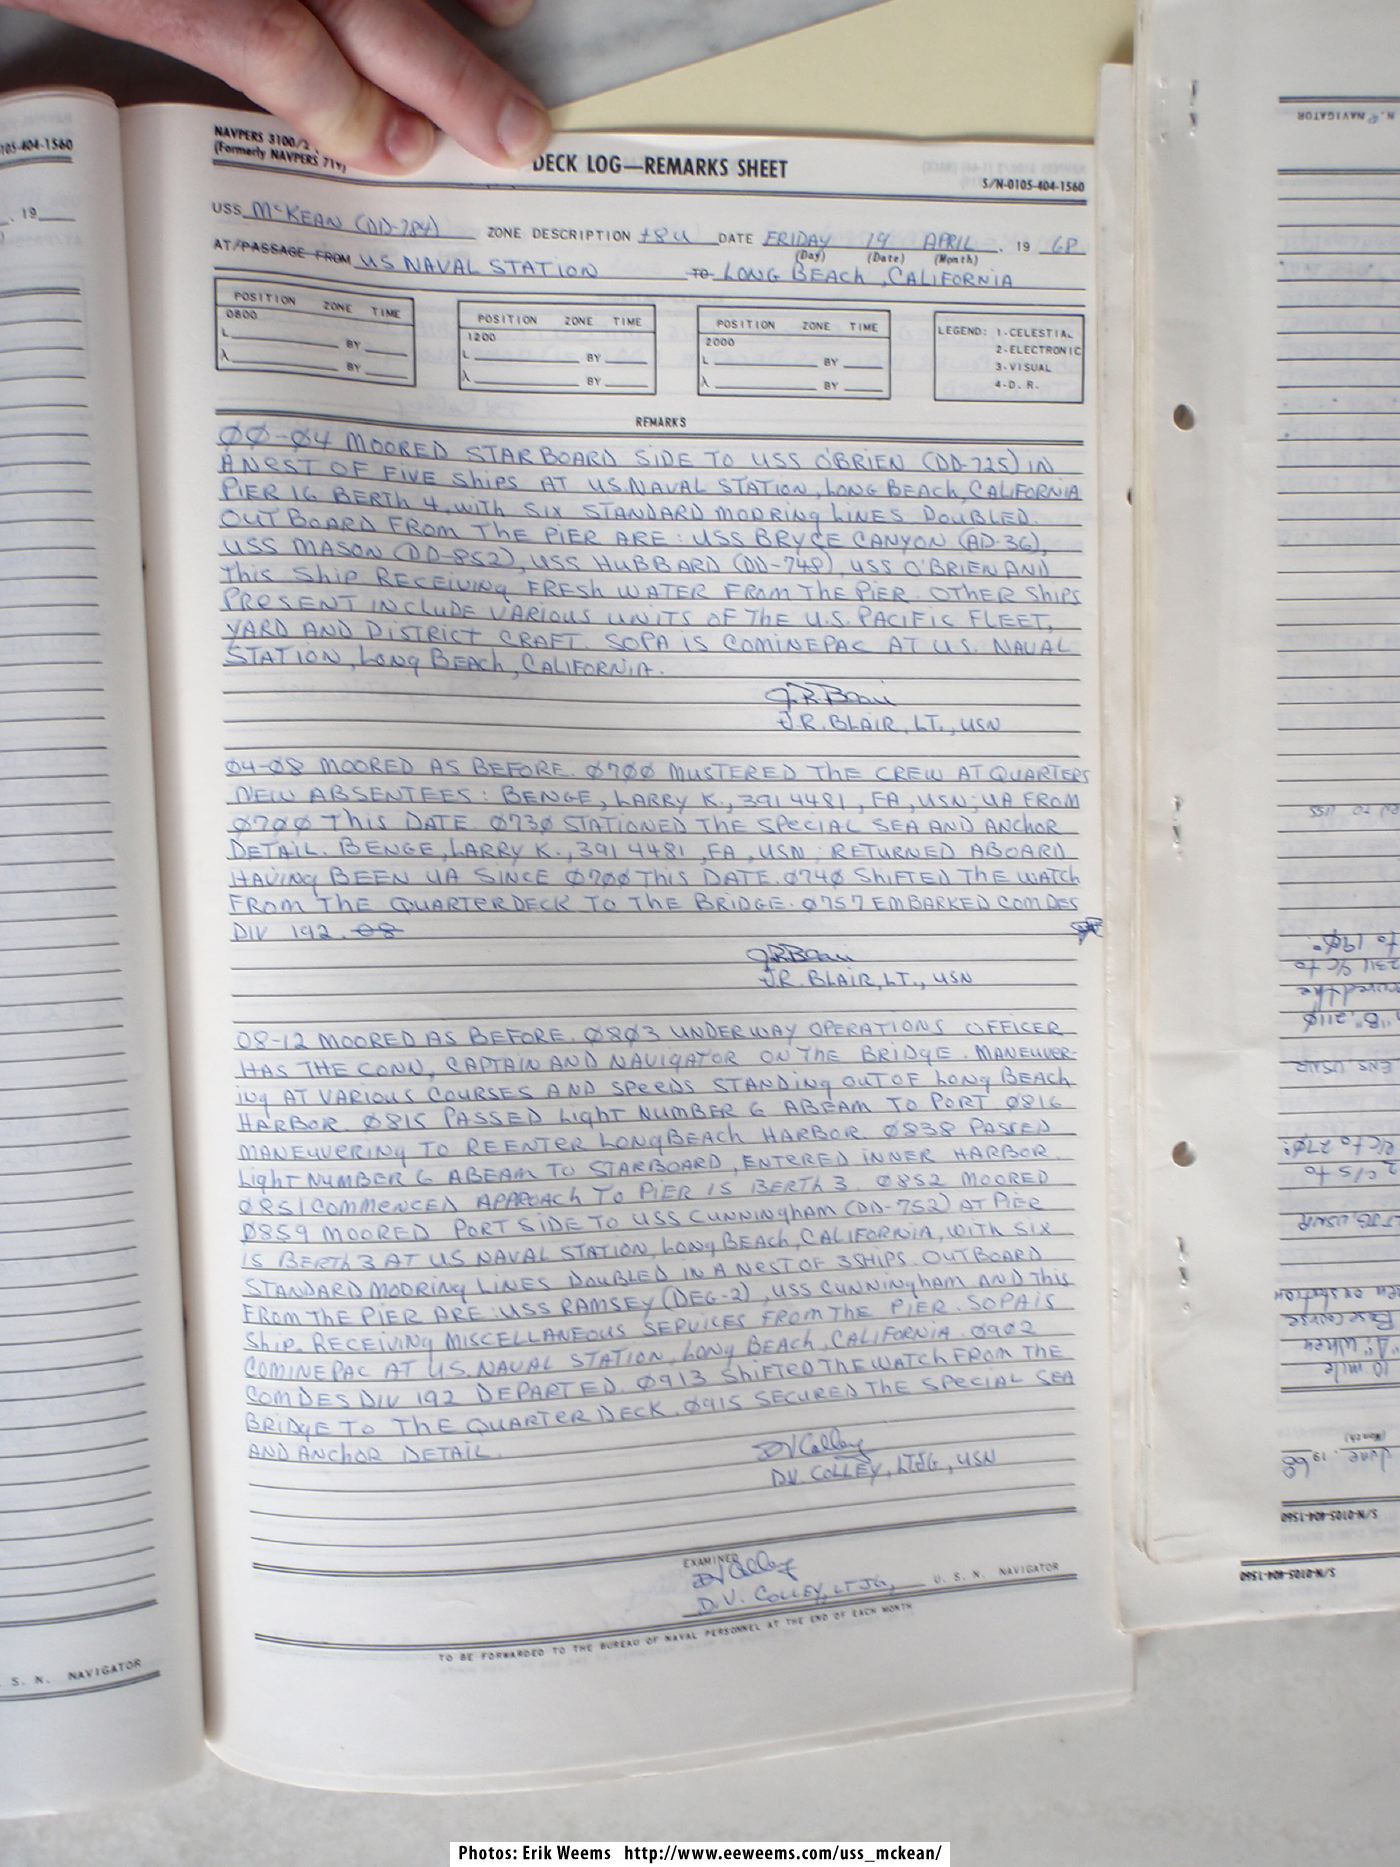 105-404-1560
. 19
S. N. NAVIGATOR
NAVPERS 3100/2
(Formerly NAVPERS 719)
DECK LOG—REMARKS SHEET
S/N-0105-404-1560
USS McKEAN (DD-784) ZONE DESCRIPTION +8U DATE FRIDAY 19 APRIL . 19 68
(Day) (Date) (Month)
AT/PASSAGE FROM US NAVAL STATION TO LONG BEACH, CALIFORNIA
POSITION ZONE TIME
0800
L BY
λ BY
POSITION ZONE TIME
1200
L BY
λ BY
POSITION ZONE TIME
2000
L BY
λ BY
LEGEND: 1-CELESTIAL
2-ELECTRONIC
3-VISUAL
4-D. R.
REMARKS
ØØ-Ø4 MOORED STARBOARD SIDE TO USS O'BRIEN (DD-725) IN
A NEST OF FIVE SHIPS AT U.S. NAVAL STATION, LONG BEACH, CALIFORNIA
PIER 16 BERTH 4, WITH SIX STANDARD MOORING LINES DOUBLED.
OUTBOARD FROM THE PIER ARE: USS BRYCE CANYON (AD-36),
USS MASON (DD-852), USS HUBBARD (DD-748), USS O'BRIEN AND
THIS SHIP RECEIVING FRESH WATER FROM THE PIER. OTHER SHIPS
PRESENT INCLUDE VARIOUS UNITS OF THE U.S. PACIFIC FLEET,
YARD AND DISTRICT CRAFT. SOPA IS COMINEPAC AT U.S. NAVAL
STATION, LONG BEACH, CALIFORNIA.
J.R. Blair
J.R. BLAIR, LT., USN
04-08 MOORED AS BEFORE. Ø7ØØ MUSTERED THE CREW AT QUARTERS
NEW ABSENTEES: BENGE, LARRY K., 391 4481, FA, USN; UA FROM
Ø7ØØ THIS DATE. Ø73Ø STATIONED THE SPECIAL SEA AND ANCHOR
DETAIL. BENGE, LARRY K., 391 4481, FA, USN; RETURNED ABOARD
HAVING BEEN UA SINCE Ø7ØØ THIS DATE. Ø74Ø SHIFTED THE WATCH
FROM THE QUARTERDECK TO THE BRIDGE. Ø757 EMBARKED COMDES
DIV 192. 08
J.R. Blair
J.R. BLAIR, LT., USN
08-12 MOORED AS BEFORE. Ø8Ø3 UNDERWAY OPERATIONS OFFICER
HAS THE CONN, CAPTAIN AND NAVIGATOR ON THE BRIDGE. MANEUVER-
ING AT VARIOUS COURSES AND SPEEDS STANDING OUT OF LONG BEACH
HARBOR. Ø815 PASSED LIGHT NUMBER 6 ABEAM TO PORT Ø816
MANEUVERING TO REENTER LONG BEACH HARBOR. Ø838 PASSED
LIGHT NUMBER 6 ABEAM TO STARBOARD, ENTERED INNER HARBOR.
Ø851 COMMENCED APPROACH TO PIER 15 BERTH 3. Ø852 MOORED
Ø859 MOORED PORT SIDE TO USS CUNNINGHAM (DD-752) AT PIER
15 BERTH 3 AT US NAVAL STATION, LONG BEACH, CALIFORNIA, WITH SIX
STANDARD MOORING LINES DOUBLED IN A NEST OF 3 SHIPS. OUTBOARD
FROM THE PIER ARE: USS RAMSEY (DEG-2), USS CUNNINGHAM AND THIS
SHIP. RECEIVING MISCELLANEOUS SERVICES FROM THE PIER. SOPA IS
COMINEPAC AT U.S. NAVAL STATION, LONG BEACH, CALIFORNIA. Ø902
COMDES DIV 192 DEPARTED. Ø913 SHIFTED THE WATCH FROM THE
BRIDGE TO THE QUARTERDECK. Ø915 SECURED THE SPECIAL SEA
AND ANCHOR DETAIL.
DV Colley
D.V. COLLEY, LTJG, USN
EXAMINED
DV Colley
D.V. COLLEY, LTJG, U. S. N. NAVIGATOR
TO BE FORWARDED TO THE BUREAU OF NAVAL PERSONNEL AT THE END OF EACH MONTH
S/N-0105-404-1560
S/N-0105-404-1560
June 1968
(Month)
10 mile
"A", when
Base course
ew on station
LTJG, USNR
2 c/s to
R/C to 270°
ENS, USNR
"B", 211Ø
2311 9/c to
to 19Ø°.
ed to USS
N. NAVIGATOR
Photos: Erik Weems http://www.eeweems.com/uss_mckean/